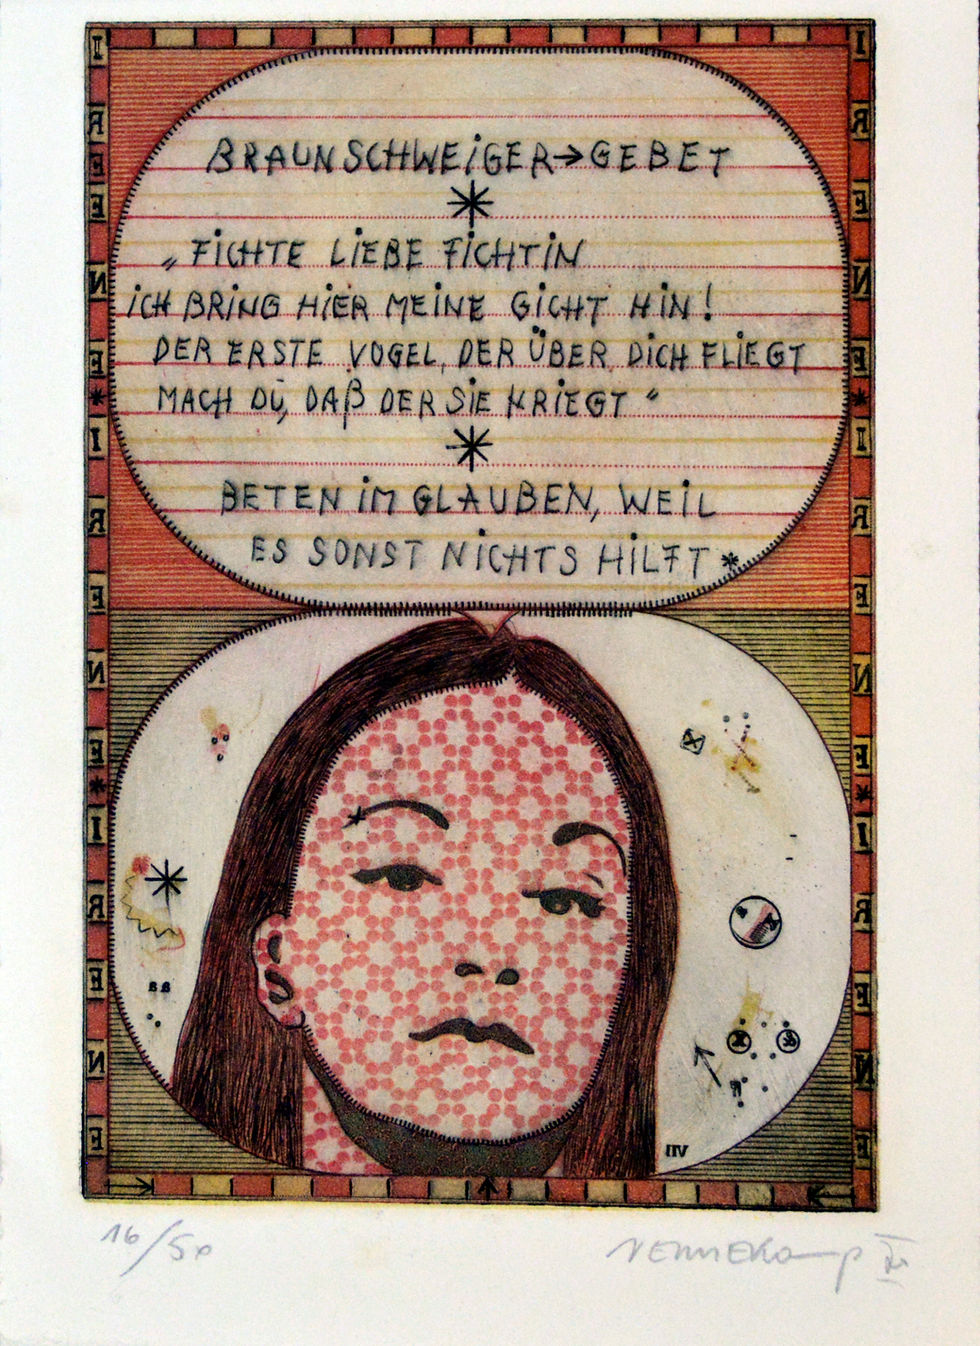 BRAUNSCHWEiGER→GEBET
*
„FiCHTE LiEBE FiCHTiN
iCH BRiNG HiER MEiNE GiCHT HiN!
DER ERSTE VOGEL, DER ÜBER DiCH FLiEGT
MACH DU, DAß DER SiE KRiEGT“
*
BETEN iM GLAUBEN, WEiL
ES SONST NiCHTS HiLFT*
IRENE*IRENE*IRENE
IRENE*IRENE*IRENE
16/50
VENNEKamp